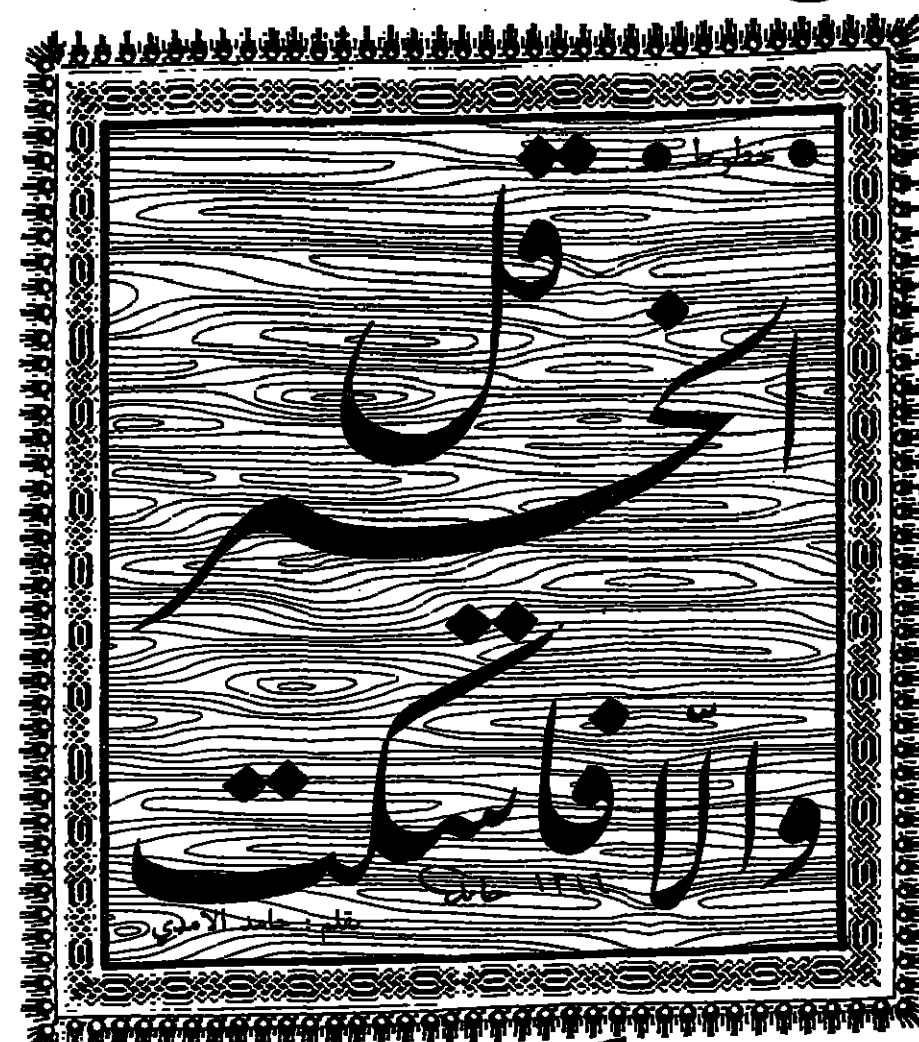 خطوط
قل
الخير
والاّ فاسكت
حامد
بقلم : حامد الآمدي